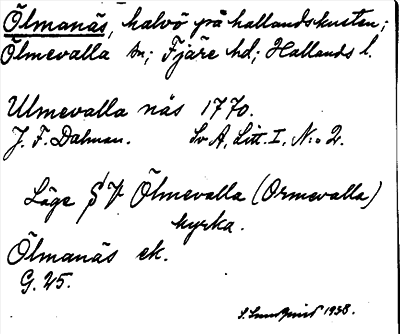 Ölmanäs, halvö på hallandskusten;
Ölmevalla sn; Fjäre hd; Hallands l.
Ulmevalla näs 1770.
J. F. Dalman. Sv A, Litt. I, N:o 2.
Läge SV Ölmevalla (Ormevalla)
kyrka.
Ölmanäs ek.
G. 25.
S. Lundqvist 1938.